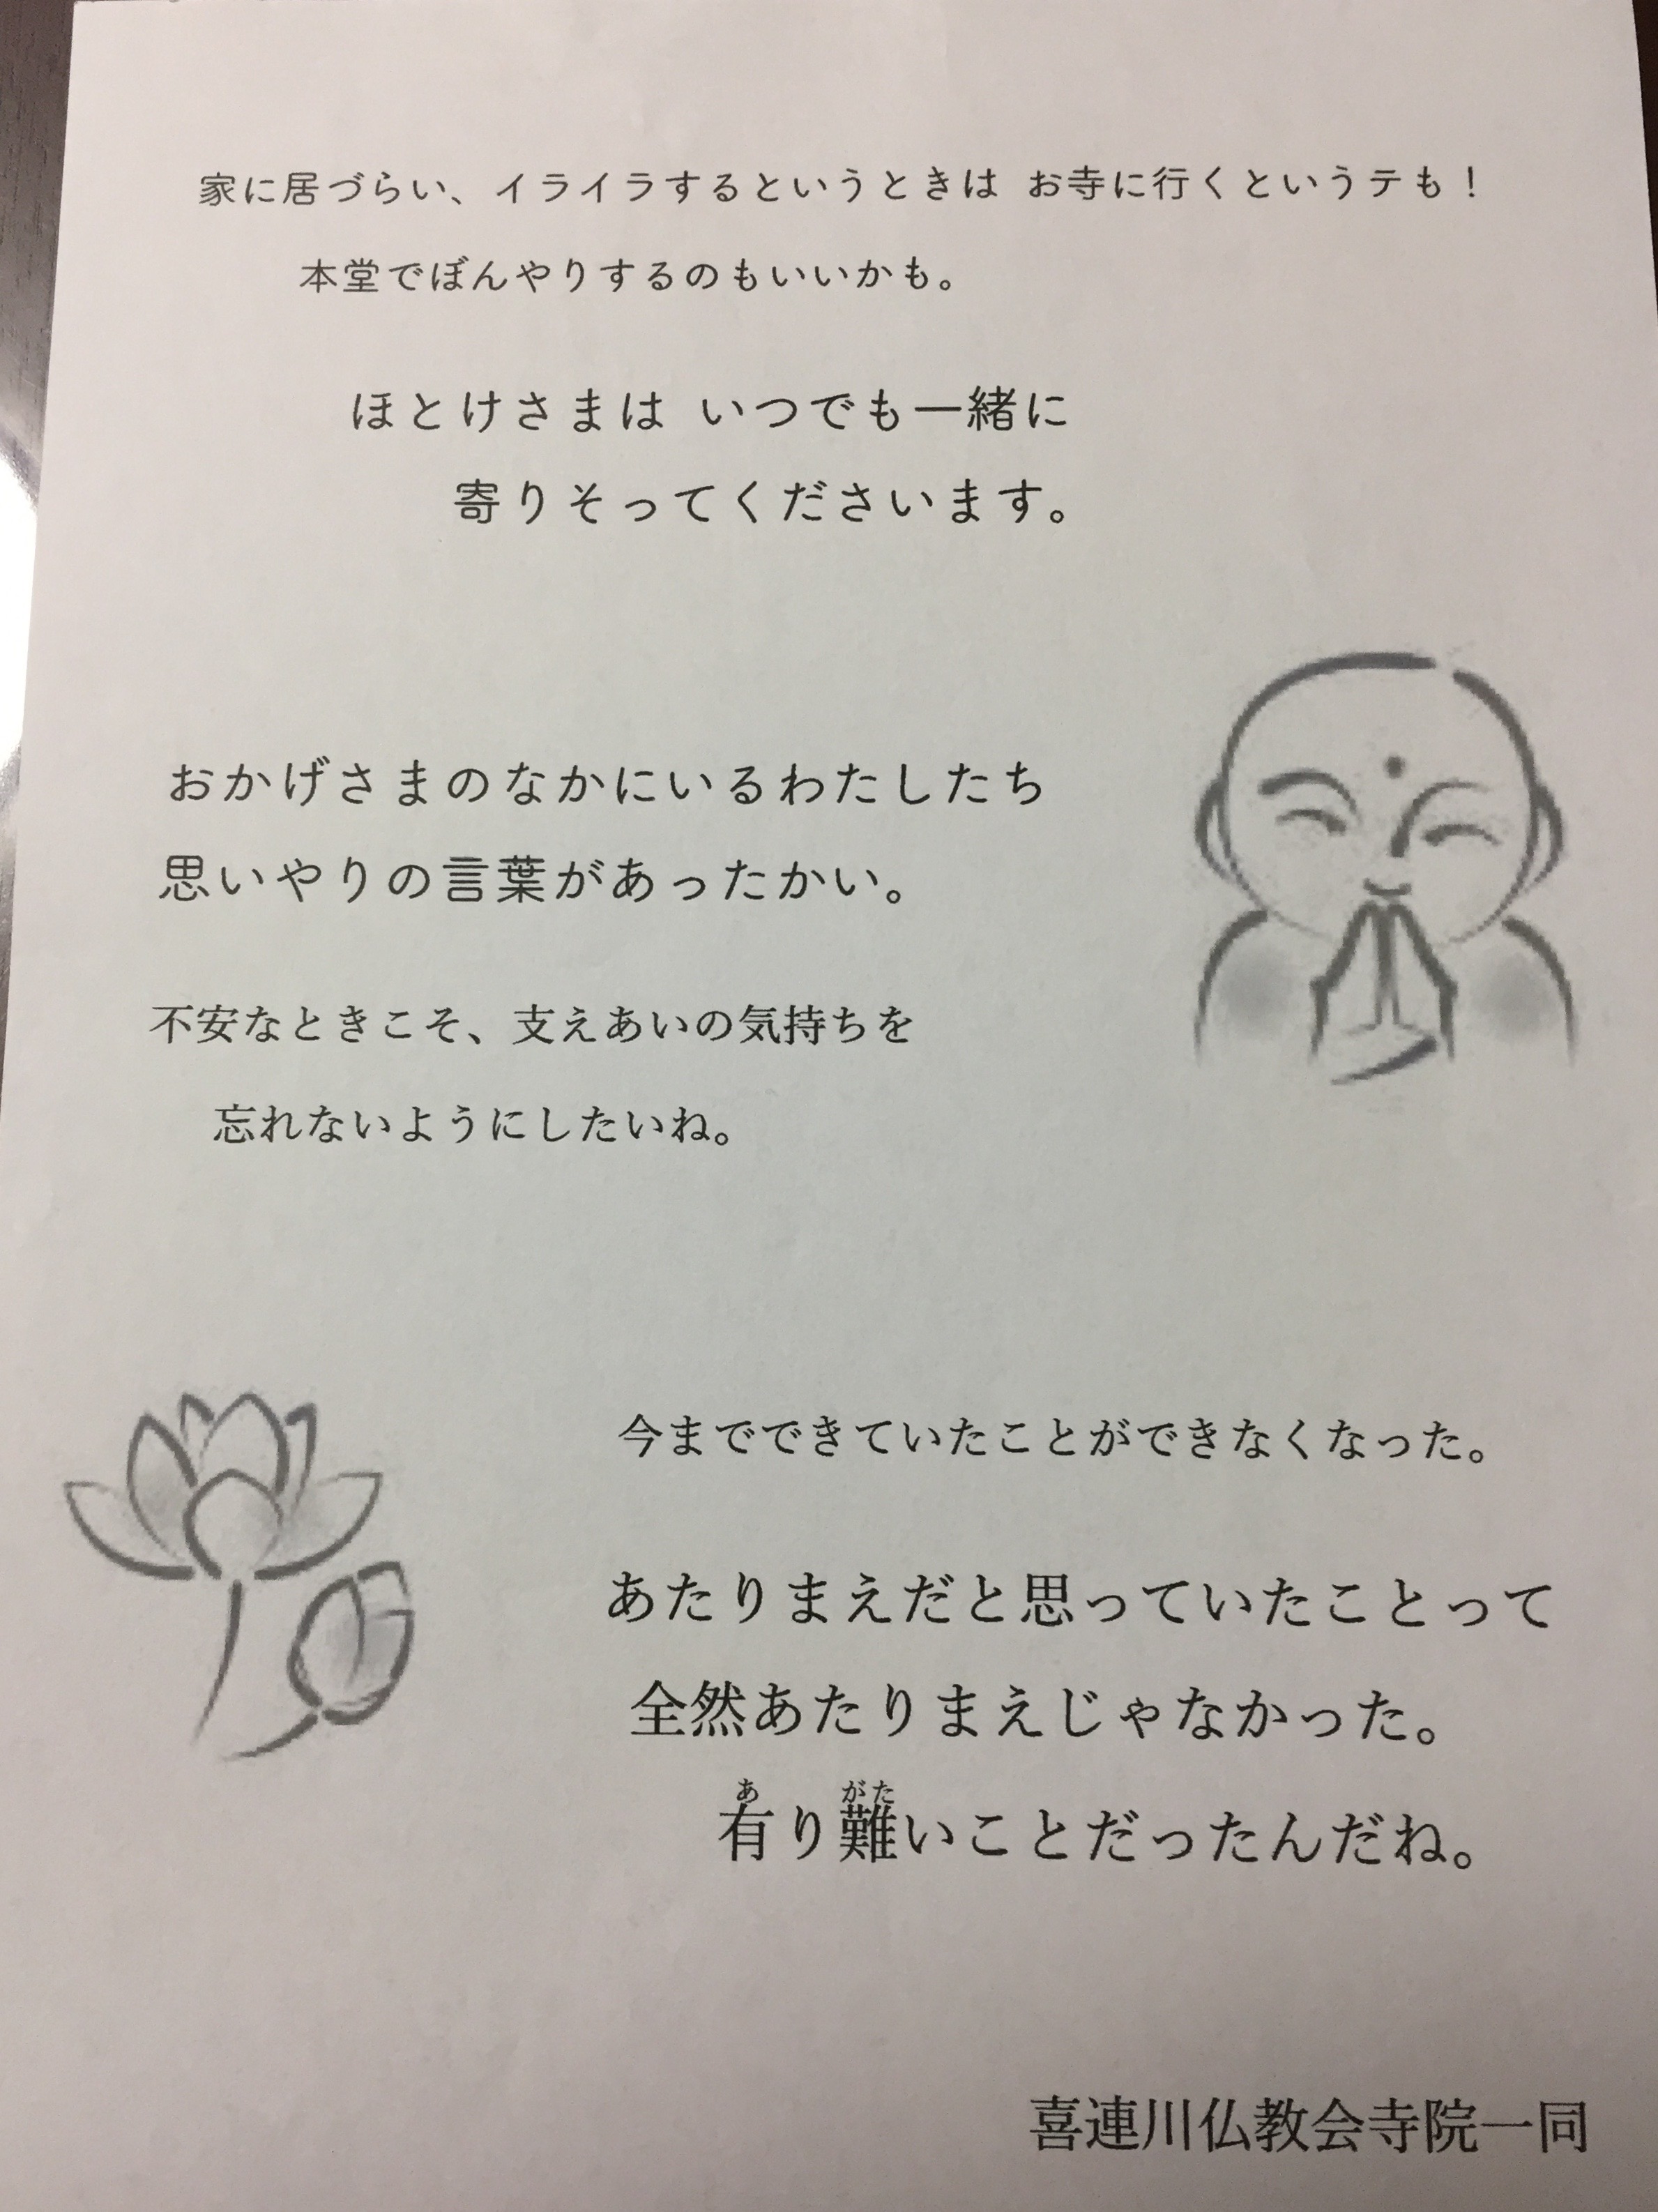 家に居づらい、イライラするというときは お寺に行くというテも！
本堂でぼんやりするのもいいかも。
ほとけさまは いつでも一緒に
寄りそってくださいます。
おかげさまのなかにいるわたしたち
思いやりの言葉があったかい。
不安なときこそ、支えあいの気持ちを
忘れないようにしたいね。
今までできていたことができなくなった。
あたりまえだと思っていたことって
全然あたりまえじゃなかった。
あ がた
有り難いことだったんだね。
喜連川仏教会寺院一同